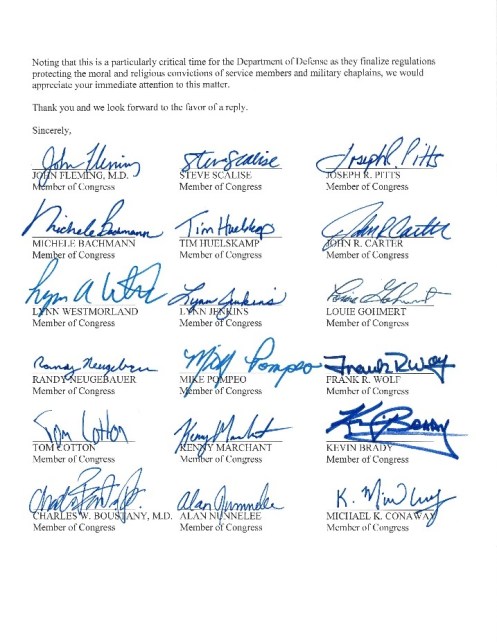 Noting that this is a particularly critical time for the Department of Defense as they finalize regulations
protecting the moral and religious convictions of service members and military chaplains, we would
appreciate your immediate attention to this matter.
Thank you and we look forward to the favor of a reply.
Sincerely,
John Fleming Steve Scalise Joseph R. Pitts
JOHN FLEMING, M.D. STEVE SCALISE JOSEPH R. PITTS
Member of Congress Member of Congress Member of Congress
Michele Bachmann Tim Huelskamp John R. Carter
MICHELE BACHMANN TIM HUELSKAMP JOHN R. CARTER
Member of Congress Member of Congress Member of Congress
Lynn A Lynn Jenkins Louie Gohmert
LYNN WESTMORLAND LYNN JENKINS LOUIE GOHMERT
Member of Congress Member of Congress Member of Congress
Randy Neugebauer Mike Pompeo Frank R. Wolf
RANDY NEUGEBAUER MIKE POMPEO FRANK R. WOLF
Member of Congress Member of Congress Member of Congress
Tom Cotton Kenny Marchant Brady
TOM COTTON KENNY MARCHANT KEVIN BRADY
Member of Congress Member of Congress Member of Congress
Alan Nunnelee K. Mike
CHARLES W. BOUSTANY, M.D. ALAN NUNNELEE MICHAEL K. CONAWAY
Member of Congress Member of Congress Member of Congress